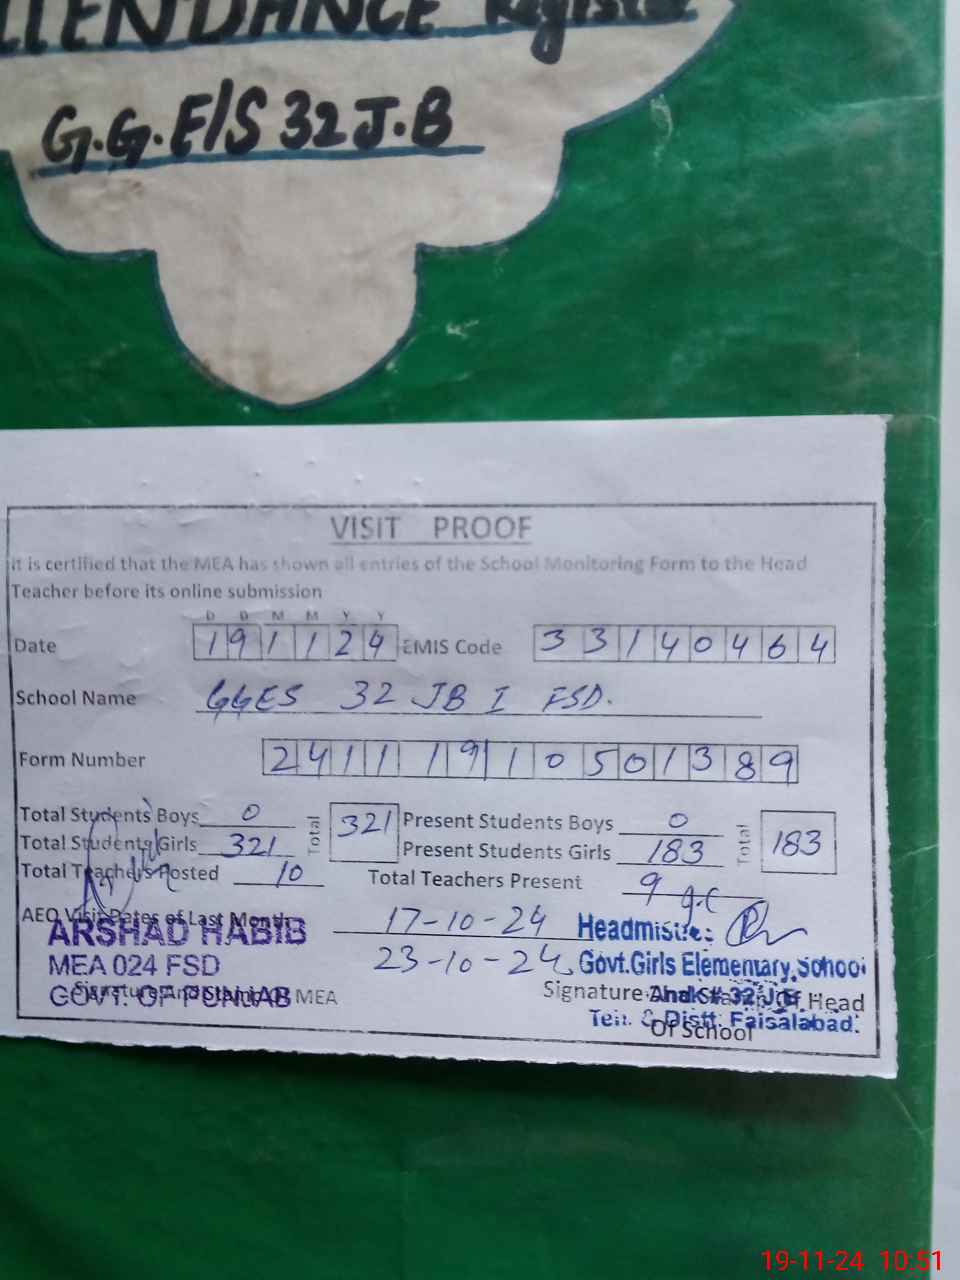 ATTENDANCE Register
G.G.E/S 32 J.B
VISIT PROOF
it is certified that the MEA has shown all entries of the School Monitoring Form to the Head
Teacher before its online submission
D D M M Y Y
Date 191124 EMIS Code 33140464
School Name GGES 32 JB I FSD.
Form Number 24111910501389
Total Students Boys 0 Total 321 Present Students Boys 0 Total 183
Total Students Girls 321 Present Students Girls 183
Total Teachers Posted 10 Total Teachers Present 9
AEO Visit Dates of Last Month 17-10-24
23-10-24
ARSHAD HABIB
MEA 024 FSD
GOVT. OF PUNJAB
Signature And Stamp Of MEA
Headmistress
Govt.Girls Elementary School
Chak# 32 J.B
Teh. & Distt. Faisalabad.
Signature And Stamp Of Head
Of School
19-11-24 10:51